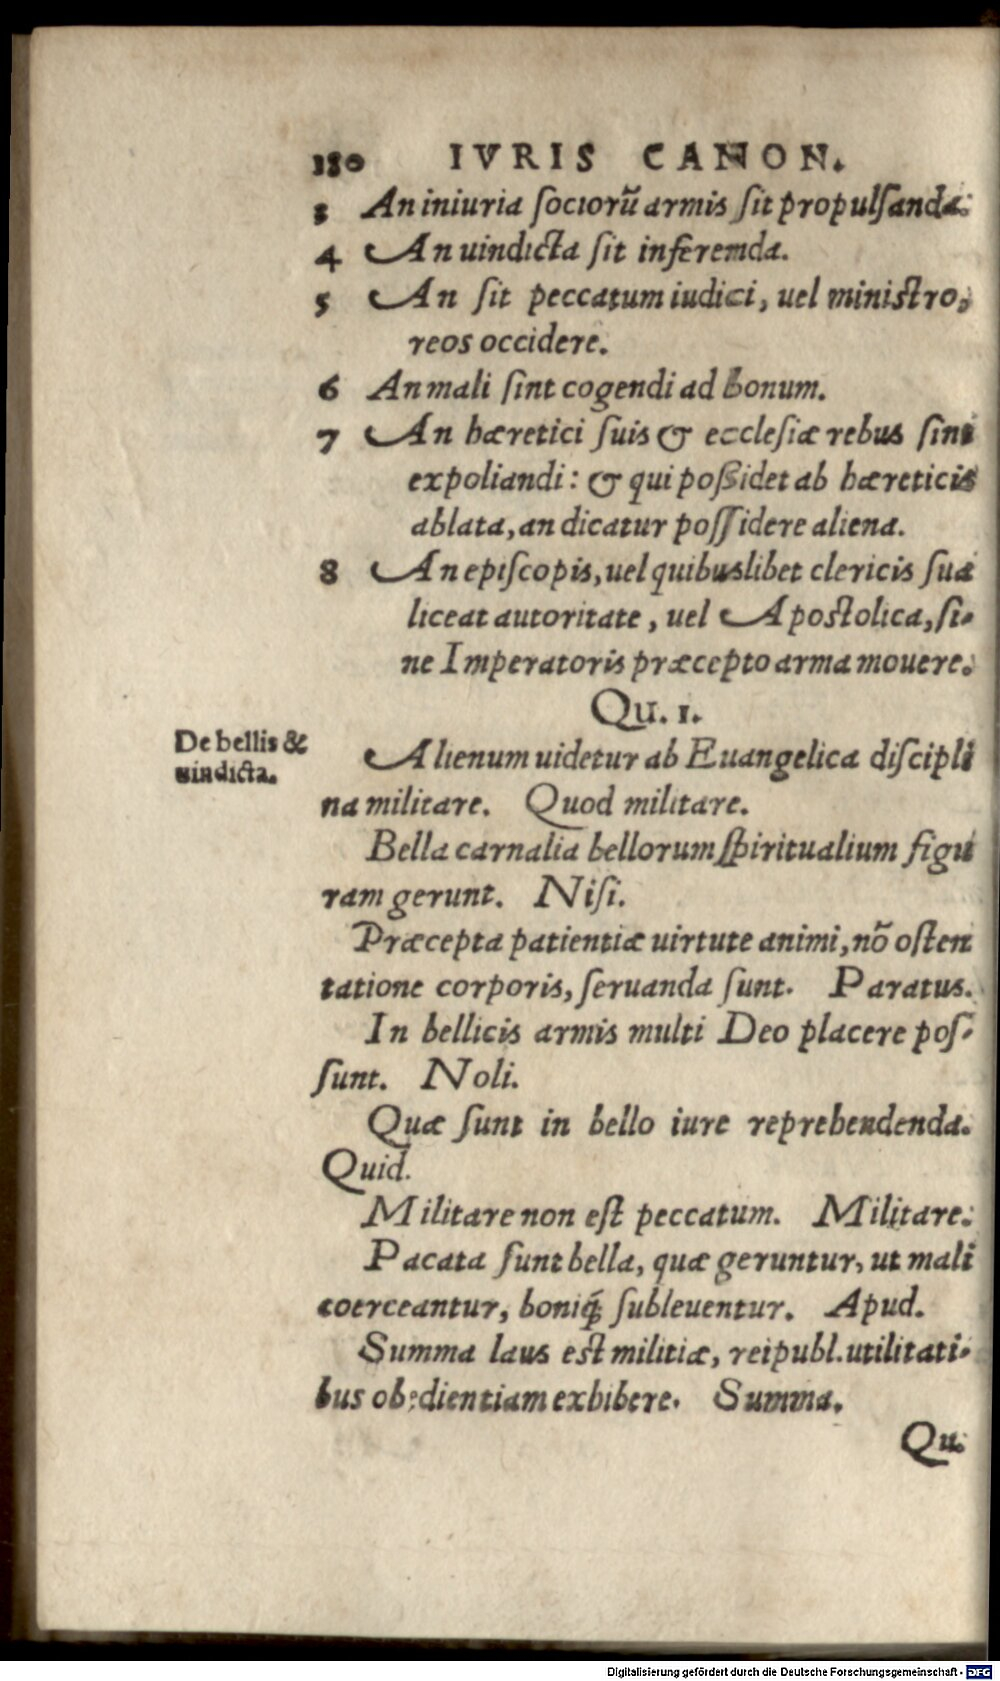 180 IVRIS CANON.
3 An iniuria socıorũ armis sit propulsanda.
4 An uindicta sit inferemda.
5 An sit peccatum iudici, uel ministro,
reos occidere.
6 An mali sint cogendi ad bonum.
7 An hæretici suis & ecclesiæ rebus sint
expoliandi: & qui poßidet ab hæreticis
ablata, an dicatur possidere aliena.
8 An episcopis, uel quibuslibet clericis sua
liceat autoritate, uel Apostolica, si-
ne Imperatoris præcepto arma mouere.
Qu. 1.
De bellis &
uindicta.
Alienum uidetur ab Euangelica discipli
na militare. Quod militare.
Bella carnalia bellorum spiritualium figu
ram gerunt. Nisi.
Præcepta patientiæ uirtute animi, nõ osten
tatione corporis, seruanda sunt. Paratus.
In bellicis armis multi Deo placere pos-
sunt. Noli.
Quæ sunt in bello iure reprehendenda.
Quid.
Militare non est peccatum. Militare.
Pacata sunt bella, quæ geruntur, ut mali
coerceantur, boniq́; subleuentur. Apud.
Summa laus est militiæ, reipubl. utilitati-
bus obedientiam exhibere. Summa.
Qu.
Digitalisierung gefördert durch die Deutsche Forschungsgemeinschaft - DFG